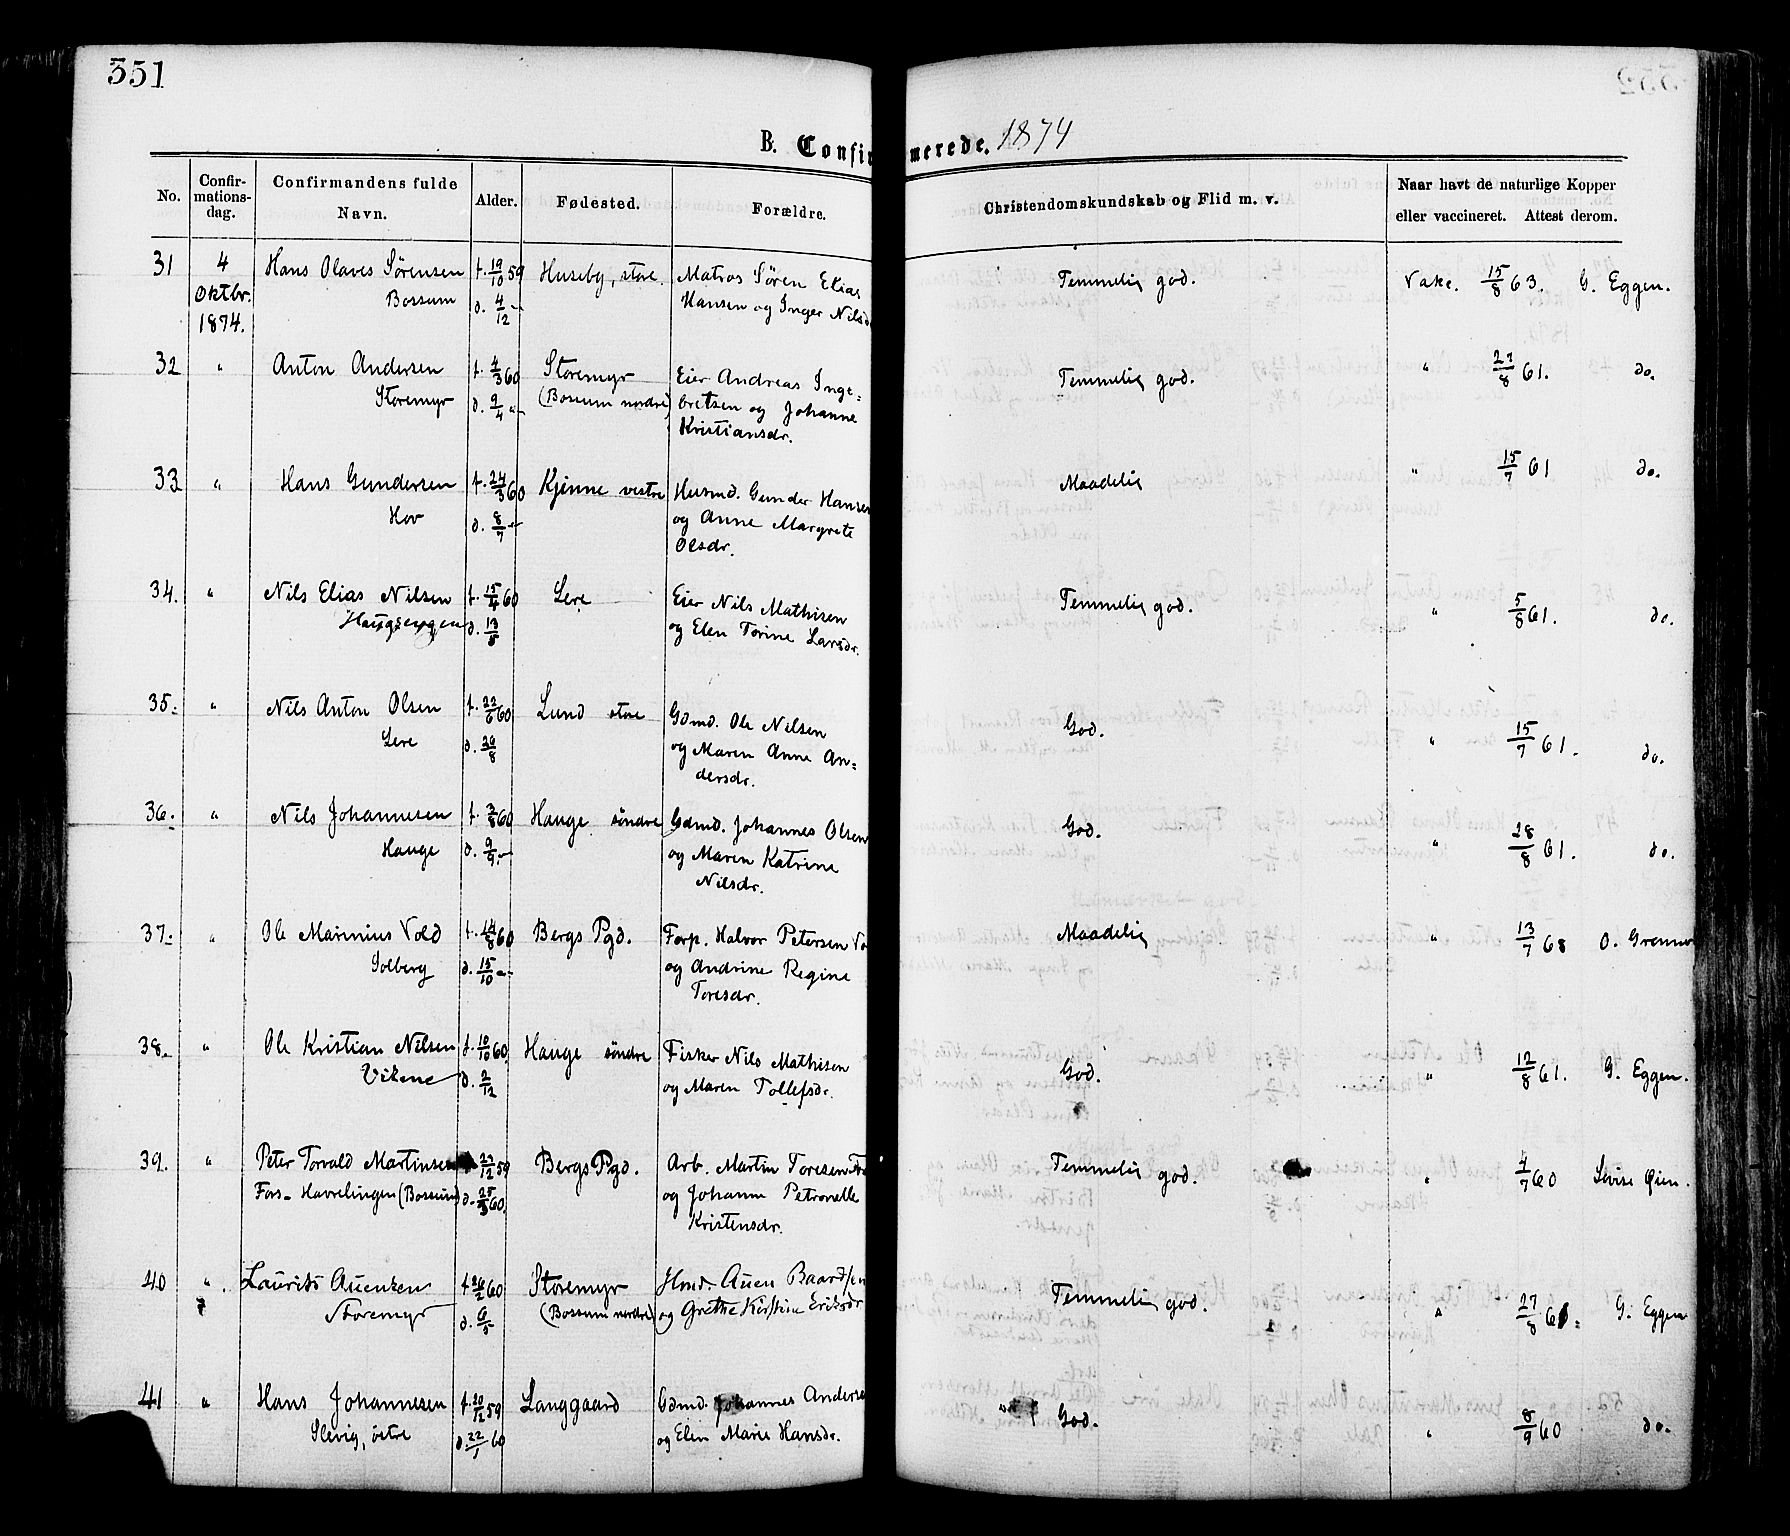 351
B. Confirmerede. 1874
No.
Confir-
mations-
dag.
Confirmandens fulde
Navn.
Alder.
Fødested.
Forældre.
Christendomskundskab og Flid m. v.
Naar havt de naturlige Kopper
eller vaccineret. Attest derom.
31 4 Hans Olaves Sørensen f. 19/10 59 Huseby, store. Matros Søren Elias Temmelig god. Vakc. 15/8 63. G. Eggen.
Oktbr. Bossum d. 4/12 - Hansen og Inger Nilsd
1874.
32 " Anton Andersen f. 4/3 60 Storemyr Eier Andreas Inge- Temmelig god. " 27/8 61. do.
Storemyr d. 9/4 - (Bossum nordre) bretsen og Johanne
Kristiansdr.
33 " Hans Gundersen f. 24/3 60 Kjenne vestre Husmd. Gunder Hansen Maadelig " 15/7 61 do.
Hov d. 8/7 - og Anne Margrete
Olsdr.
34. " Nils Elias Nilsen f. 15/4 60 Lere Eier Nils Mathisen Temmelig god. " 5/8 61. do.
Haugsengen d. 13/5 og Elen Torine Larsdr.
35. " Nils Anton Olsen f. 22/6 60 Lund store Gdmd. Ole Nilsen God. " 15/7 61. do.
Lere d. 26/8 og Maren Anne An-
dersdr.
36. " Nils Johannesen f. 3/8 60 Hauge søndre Gdmd. Johannes Olsen God. " 28/8 61. do.
Hauge d. 9/9 - og Maren Katrine
Nilsdr.
37. " Ole Marinius Vold f. 14/8 60 Bergs Pgd. Forp. Halvor Petersen Vo Maadelig " 13/7 68 O.
Solberg d. 15/10 - og Andrine Regine
Toresdr.
38. " Ole Kristian Nilsen f. 10/10 60. Hauge søndre Fisker Nils Mathisen God. " 12/8 61. G. Eggen.
Vikene d. 2/12 og Maren Tollefsdr.
39. " Peter Torvald Martinsen 27/12 59 Bergs Pgd. Arb. Martin Toresen Temmelig god. " 4/7 60 Lovise Øien.
Fors- Havrelingen (Bossum) d. 25/3 60. og Johanne Petronelle
Kristensdr.
40 " Laurits Auensen f. 26/2 60 Storemyr Hmd. Auen Baardsen Temmelig god. " 27/8 61. G. Eggen
Storemyr d. 6/5 (Bossum nordre) og Grethe Kirstine Eriksdr
41 " Hans Johannesen f. 20/12 59 Langgaard Gdmd. Johannes Anderse God. " 8/9 60 do.
Slevig, østre d. 22/1 60 og Elen Marie Hansdr.